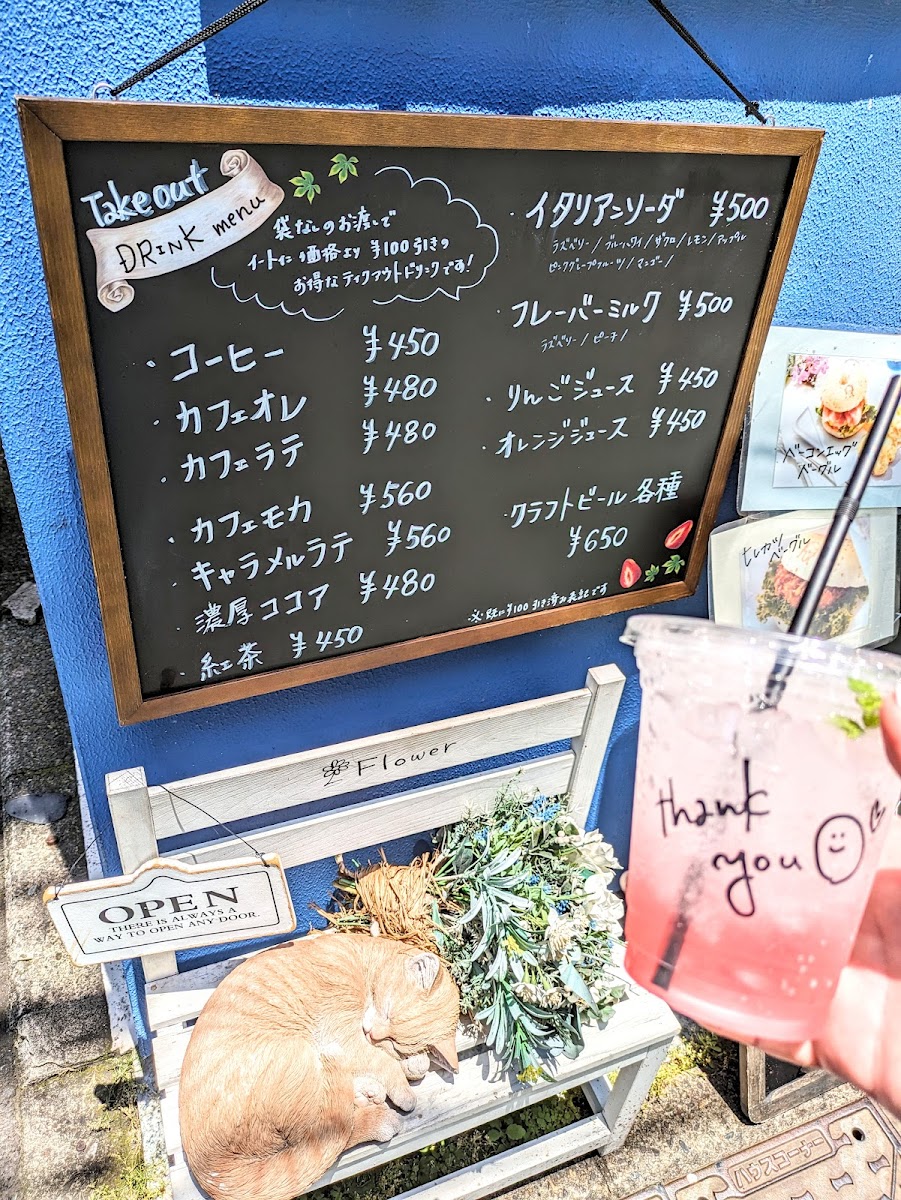 Take out
DRINK menu
袋なしのお渡しで
イートイン価格より ¥100引きの
お得なテイクアウトドリンクです!
・コーヒー ¥450
・カフェオレ ¥480
・カフェラテ ¥480
・カフェモカ ¥560
・キャラメルラテ ¥560
・濃厚ココア ¥480
・紅茶 ¥450
・イタリアンソーダ ¥500
ラズベリー/ブルーハワイ/ザクロ/レモン/アップル
ピンクグレープフルーツ/マンゴー/
・フレーバーミルク ¥500
ラズベリー/ピーチ/
・りんごジュース ¥450
・オレンジジュース ¥450
・クラフトビール 各種
¥650
※既に¥100引き済み表記です
ベーコンエッグ
ベーグル
ヒレカツ
ベーグル
Flower
OPEN
THERE IS ALWAYS A
WAY TO OPEN ANY DOOR.
thank
you
ハウスコーナー